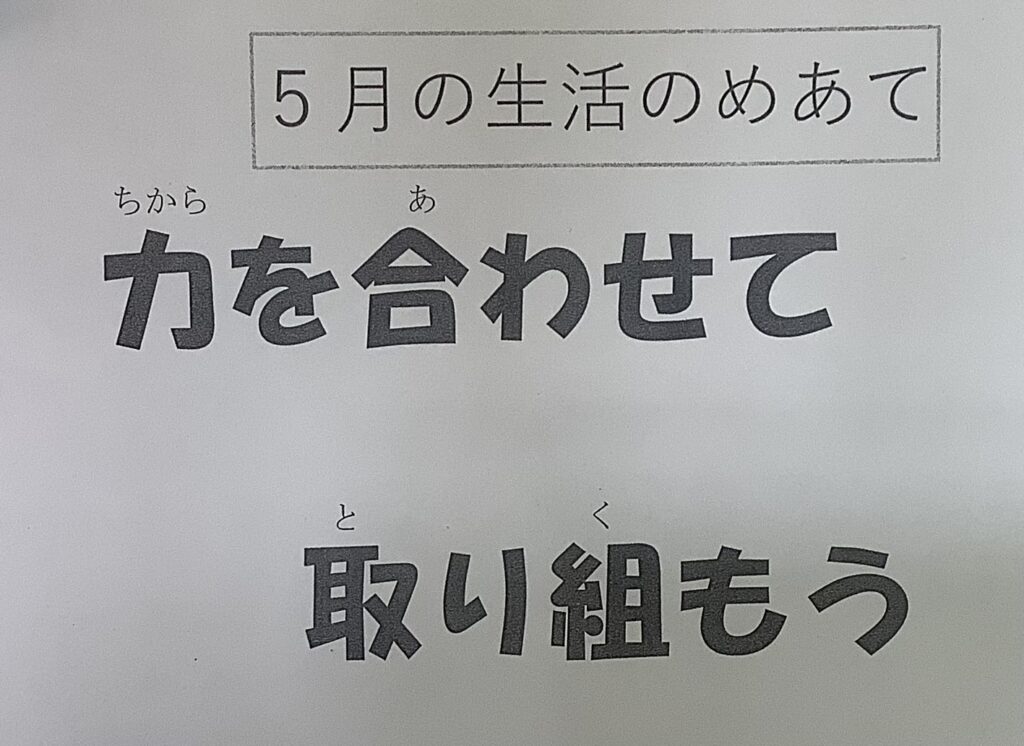 ５月の生活のめあて
ちから あ
力を合わせて
と く
取り組もう